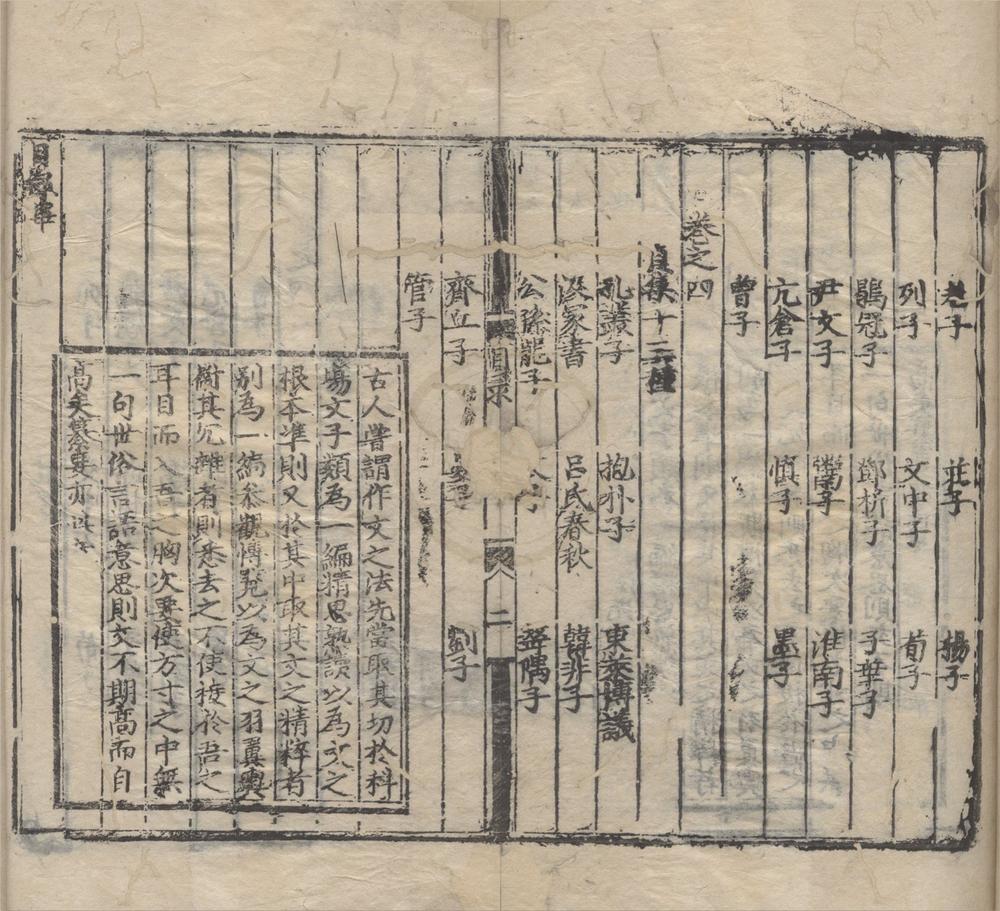 老子 莊子 揚子
列子 文中子 荀子
鶡冠子 鄧析子 子華子
尹文子 鬻子 淮南子
亢倉子 慎子 墨子
曹子
卷之四
貞集十二種
孔叢子 抱朴子 東萊博議
汲冢書 呂氏春秋 韓非子
公孫龍子 子 譚隅子
目录 八 二
齊丘子 劉子
管子
古人嘗謂作文之法先當取其切於科
場文子類為一編精思熟讀以為文之
根本準則又於其中取其文之精粹者
別為一編叅觀博覽以為文之羽翼與
衛其冗雜者則悉去之不使接於吾之
耳目而入吾之胸次要使方寸之中無
一句世俗言語意思則文不期髙而自
髙矣纂要亦
目錄畢